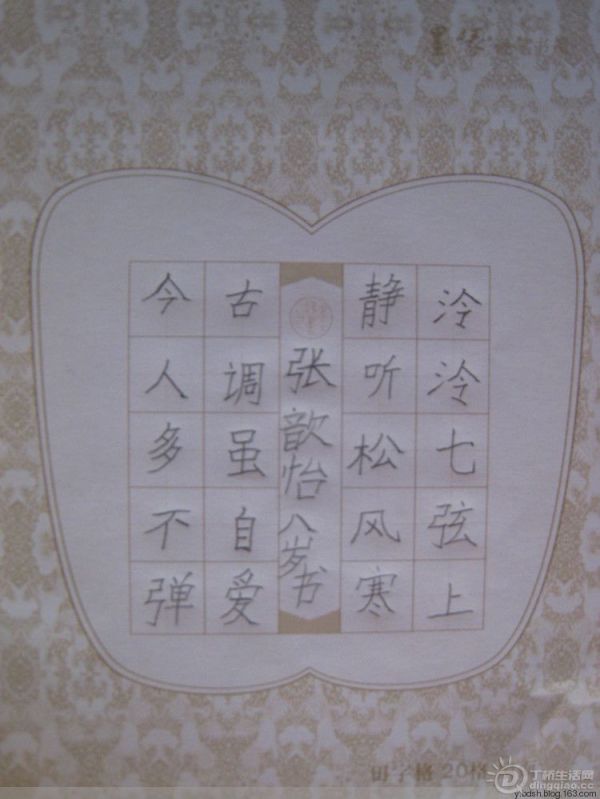 泠泠七弦上
静听松风寒
张歆怡八岁书
古调虽自爱
今人多不弹
田字格 20格
丁桥生活网
dingqiao.cc
yxdsh.blog.163.com